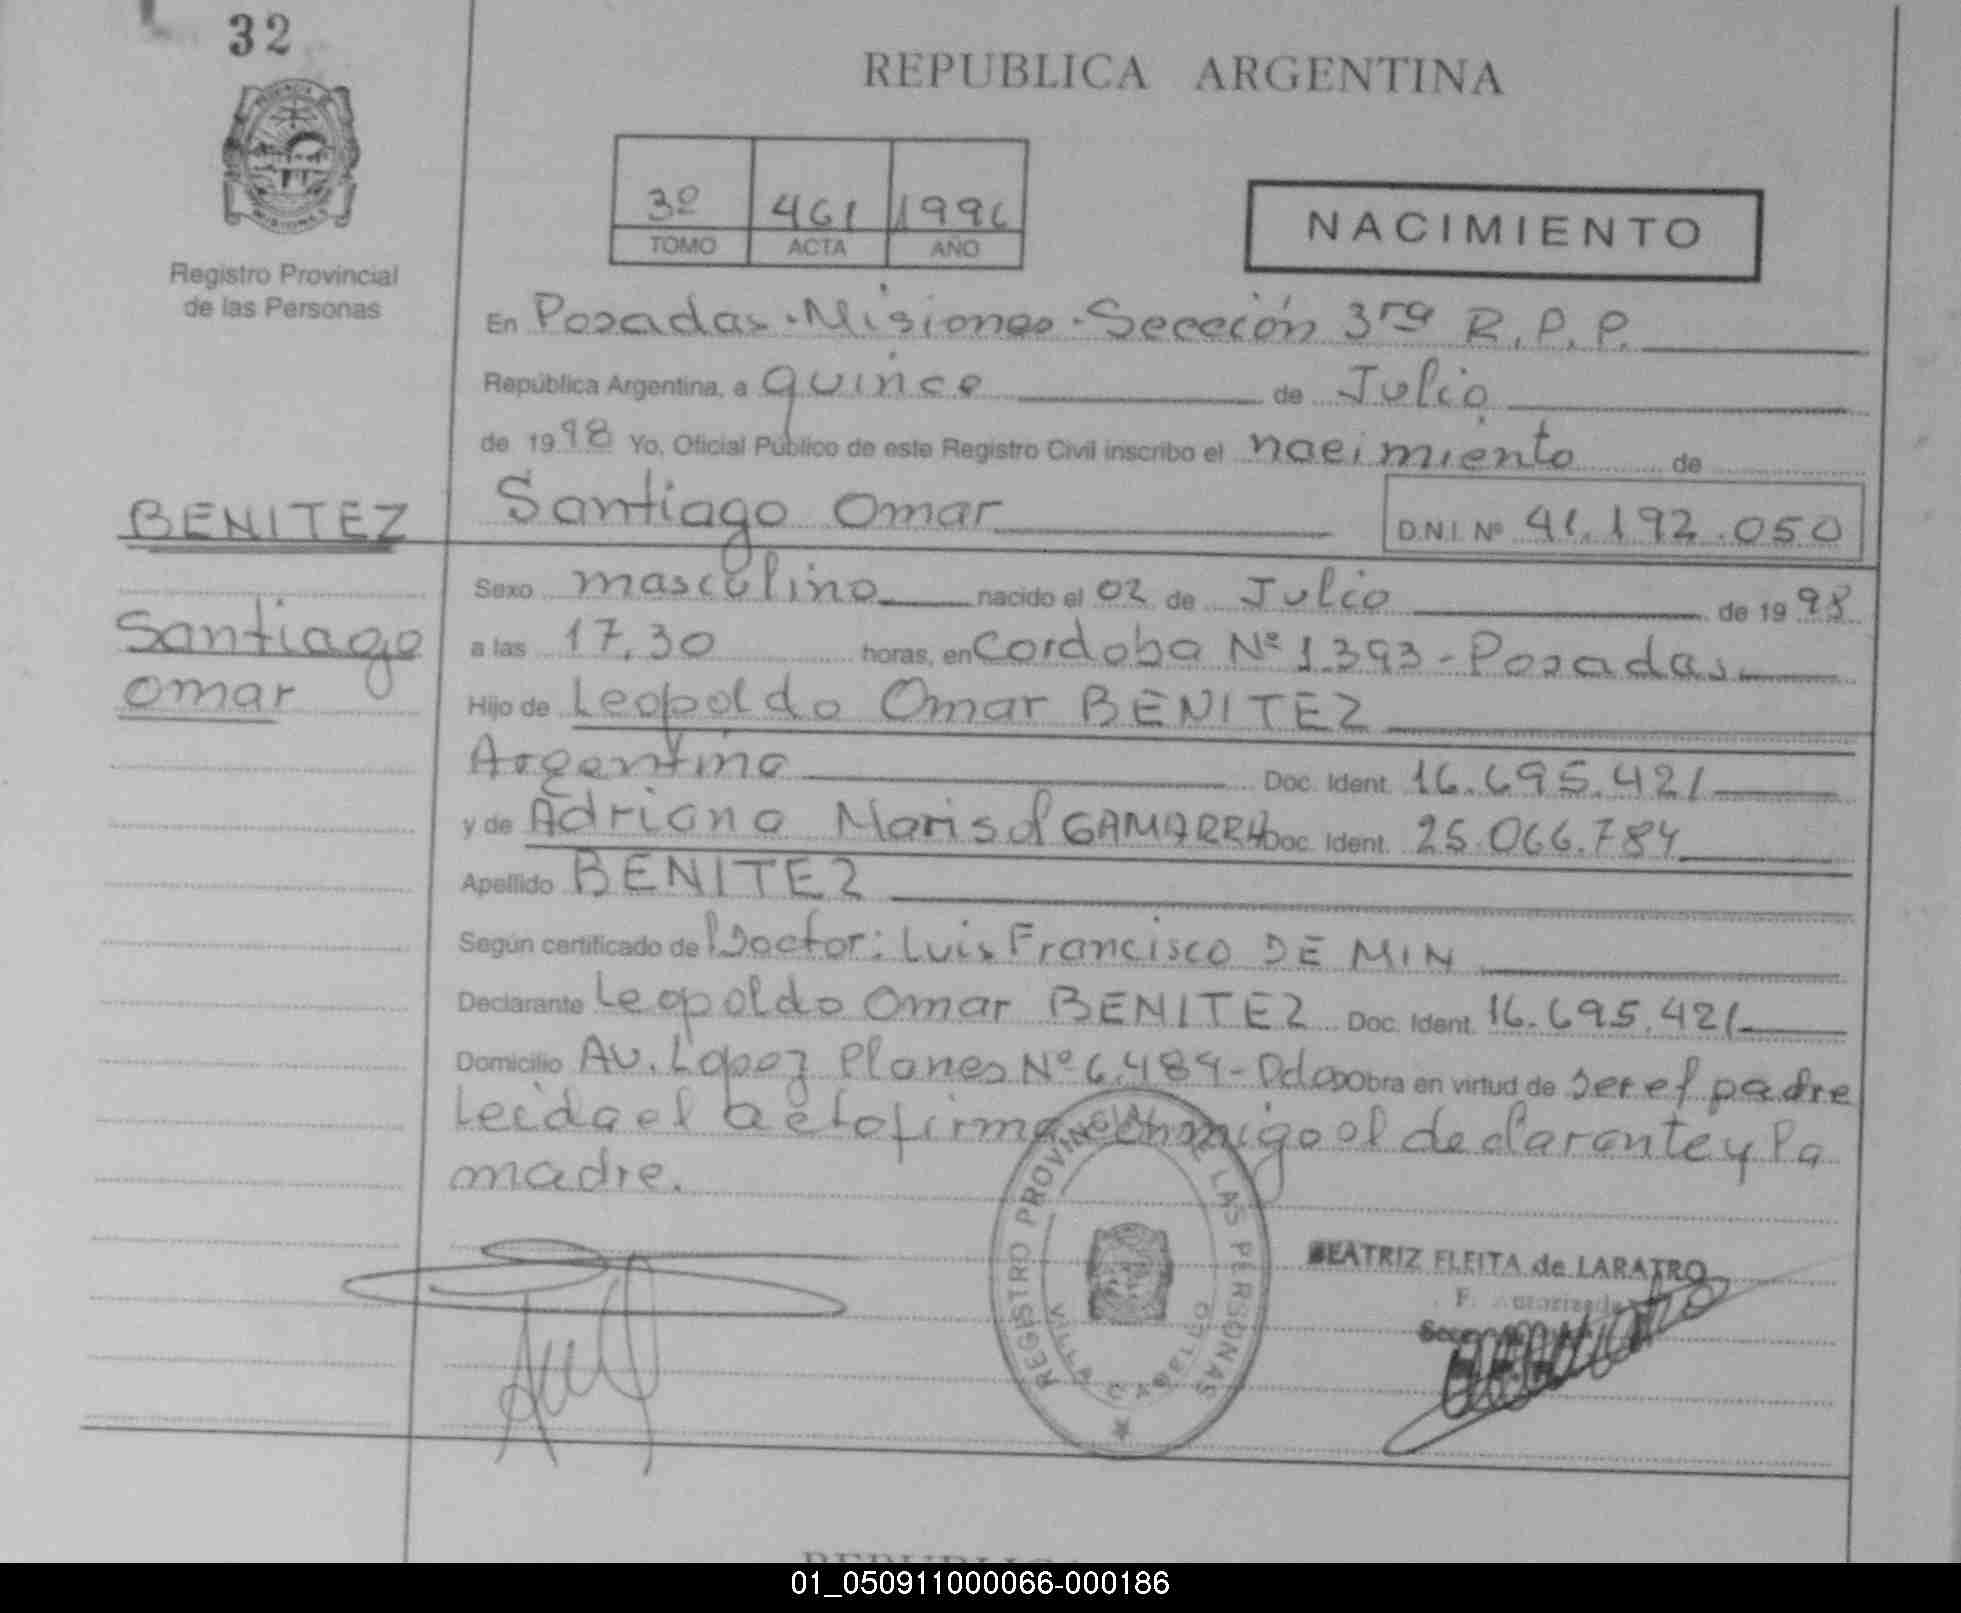 32
REPUBLICA ARGENTINA
Registro Provincial
de las Personas
3º 461 1996
TOMO ACTA AÑO
NACIMIENTO
En Posadas - Misiones - Sección 3ra R.P.P.
República Argentina, a quince de Julio
de 1998 Yo, Oficial Público de este Registro Civil inscribo el nacimiento de
BENITEZ
Santiago Omar D.N.I. Nº 41.192.050
Sexo masculino nacido el 02 de Julio de 1998
Santiago
Omar
a las 17,30 horas, en Cordoba Nº 1.393 - Posadas
Hijo de Leopoldo Omar BENITEZ
Argentina Doc. Ident. 16.695.421
y de Adriana Marisol GAMARRA Doc. Ident. 25.066.784
Apellido BENITEZ
Según certificado de Doctor: Luis Francisco DE MIN
Declarante Leopoldo Omar BENITEZ Doc. Ident. 16.695.421
Domicilio Av. Lopez Planes Nº 6.484 - Obra en virtud de ser el padre
Leida el acta firma conmigo el declarante y la
madre.
REGISTRO PROVINCIAL DE LAS PERSONAS
VILLA CABELLO
BEATRIZ FLEITA de LARATRO
F. Autorizada
01_050911000066-000186